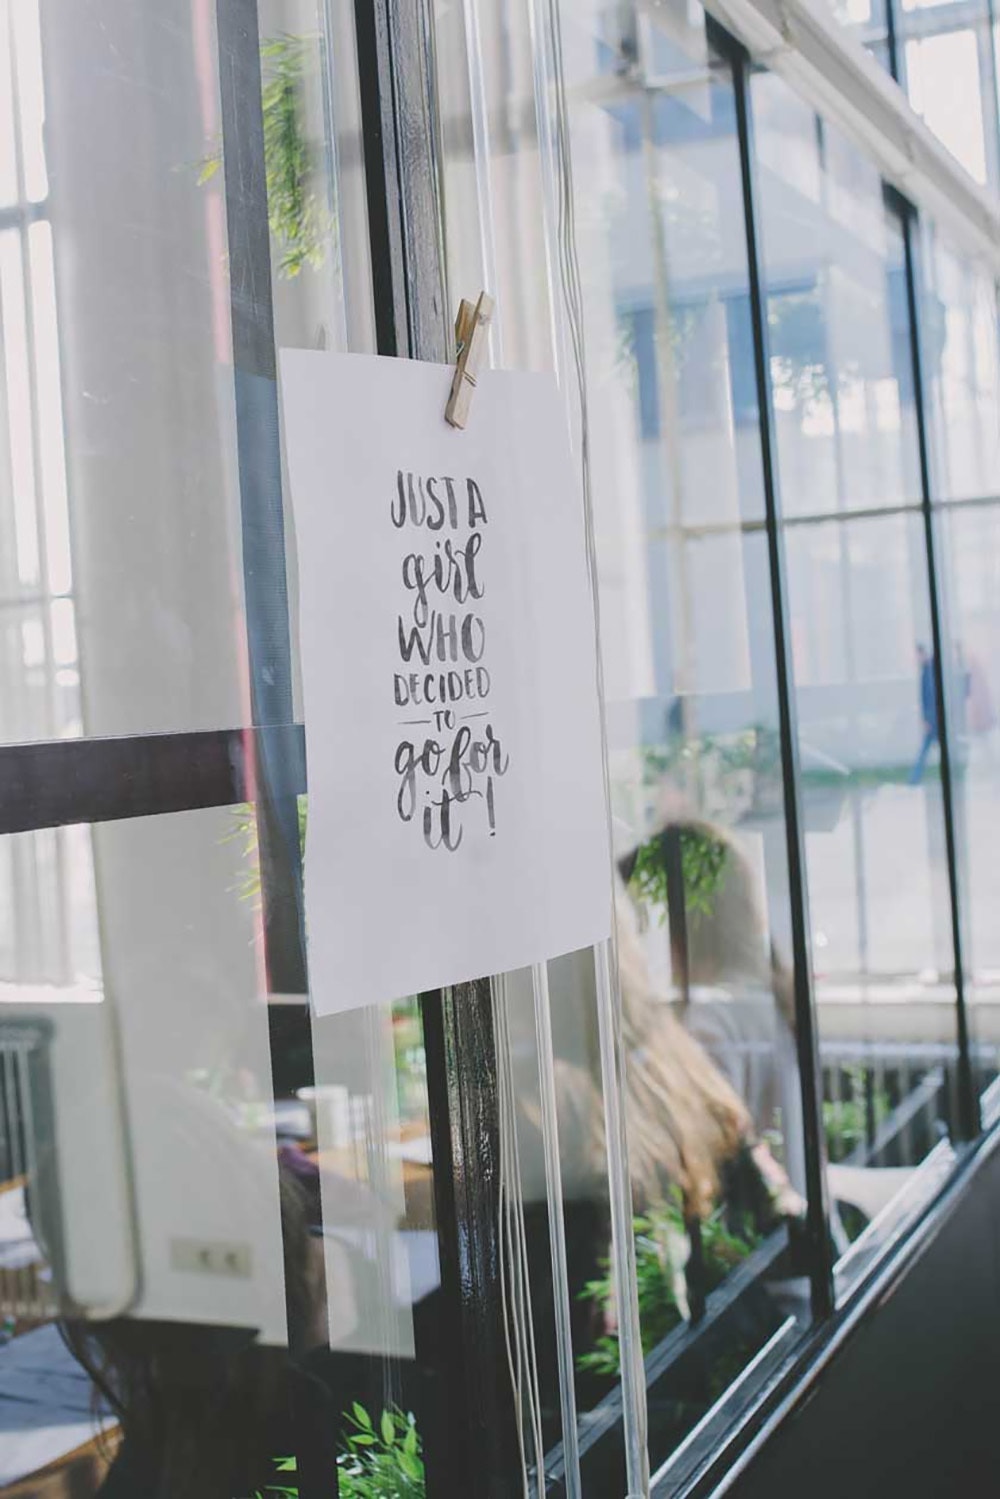 JUST A
girl
WHO
DECIDED
TO
go for
it!